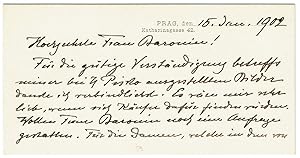 PRAG, den 15. Jan. 1902
Katharinagasse 42.
Hochgeehrte Frau Baronin!
Für die gütige Verständigung betreffs
meiner bei H. Pisko ausgestellten Bilder
danke ich verbindlichst. Es wäre mir sehr
lieb, wenn sich Käufer dafür finden würden.
Wollen Frau Baronin noch eine Anfrage
gestatten. Für die Damen, welche in den von